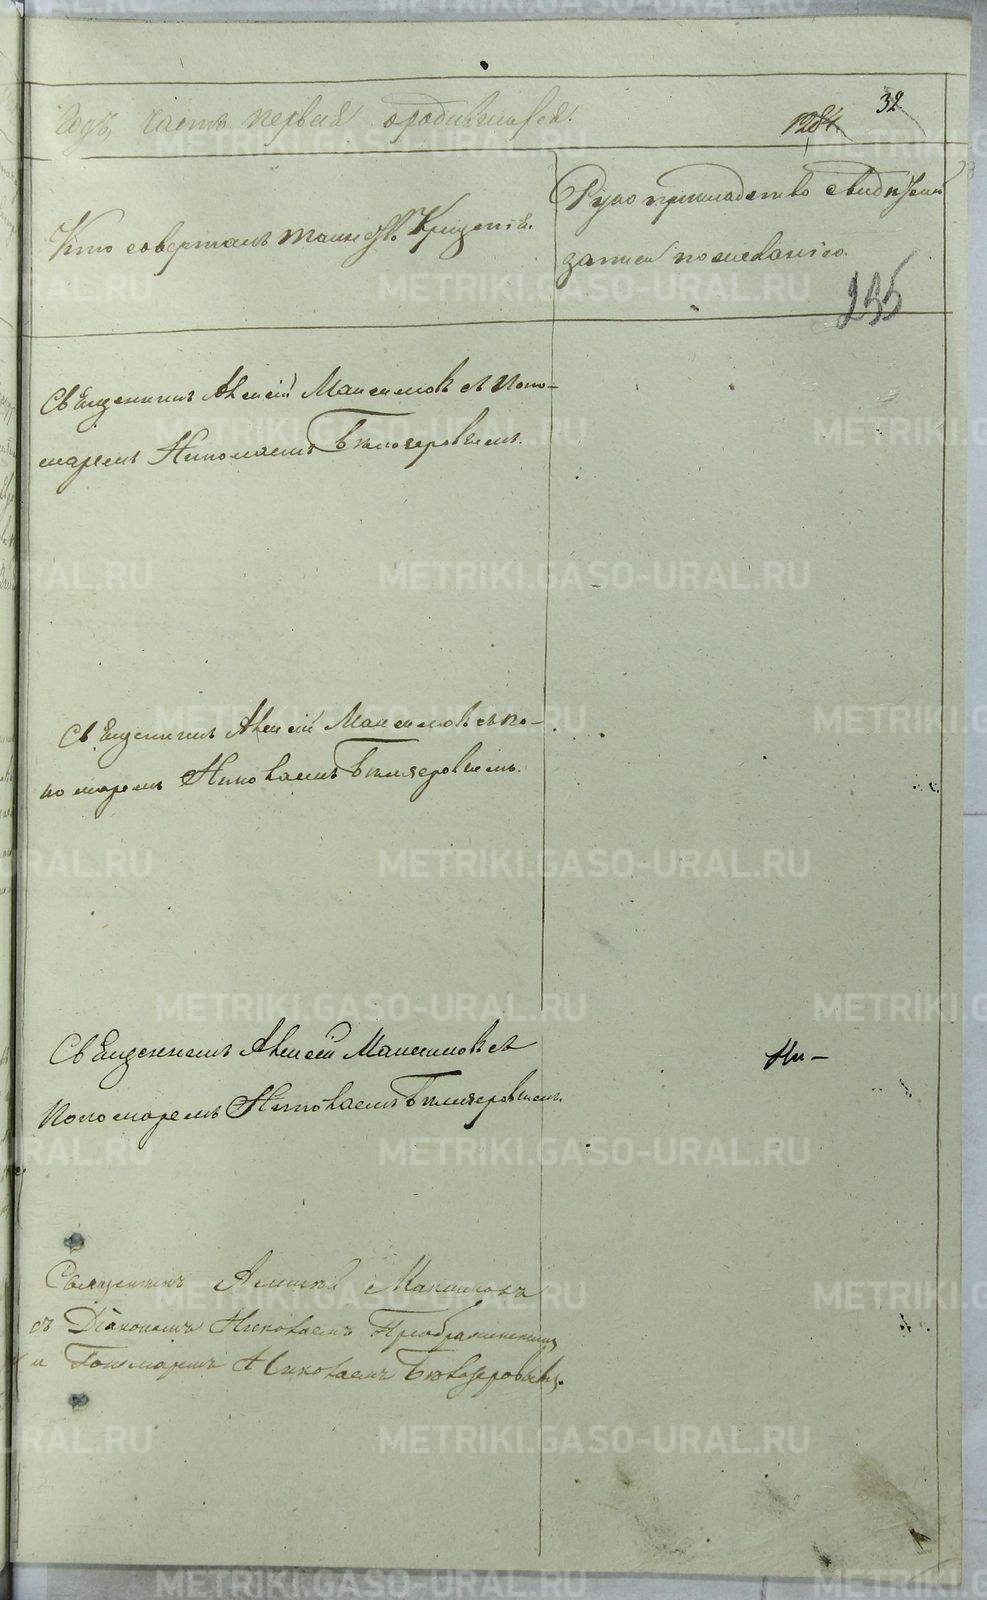 32
1284
Годъ, часть первая о родившихся.
Кто совершалъ таинство Крещенія.
Рукоприкладство свидѣтелей
записи по желанію.
235
Священникъ Алексій Максимовъ съ Поно-
маремъ Николаемъ Бѣлозеровымъ.
Священникъ Алексій Максимовъ съ по-
номаремъ Николаемъ Бѣлозеровымъ.
Священникъ Алексій Максимовъ съ
Пономаремъ Николаемъ Бѣлозеровымъ.
Ни-
Священникъ Алексѣй Максимовъ
съ Діакономъ Николаемъ Преображенскимъ
и Пономаремъ Николаемъ Бѣлозеровымъ.
METRIKI.GASO-URAL.RU